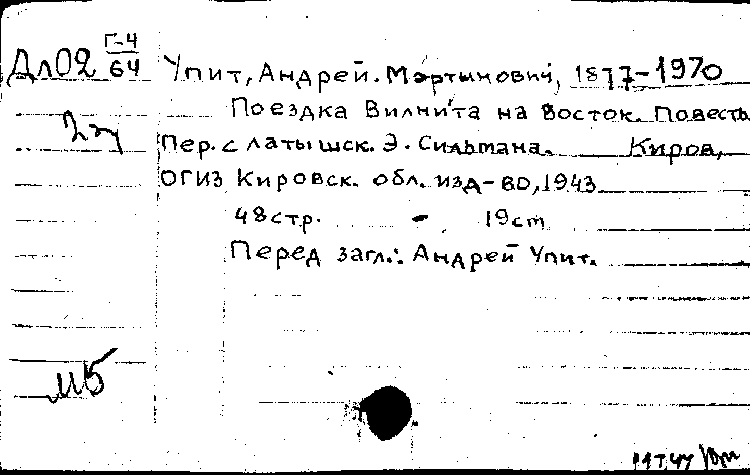 Дл02 Г-4
64
Упит, Андрей. Мартынович, 1877-1970
Поездка Вилни́та на Восток. Повесть
Пер. с латышск. Э. Сильмана. Киров,
ОГИЗ Кировск. обл. изд-во, 1943
48 стр. - 19 cm
Перед загл.: Андрей Упит.
МБ